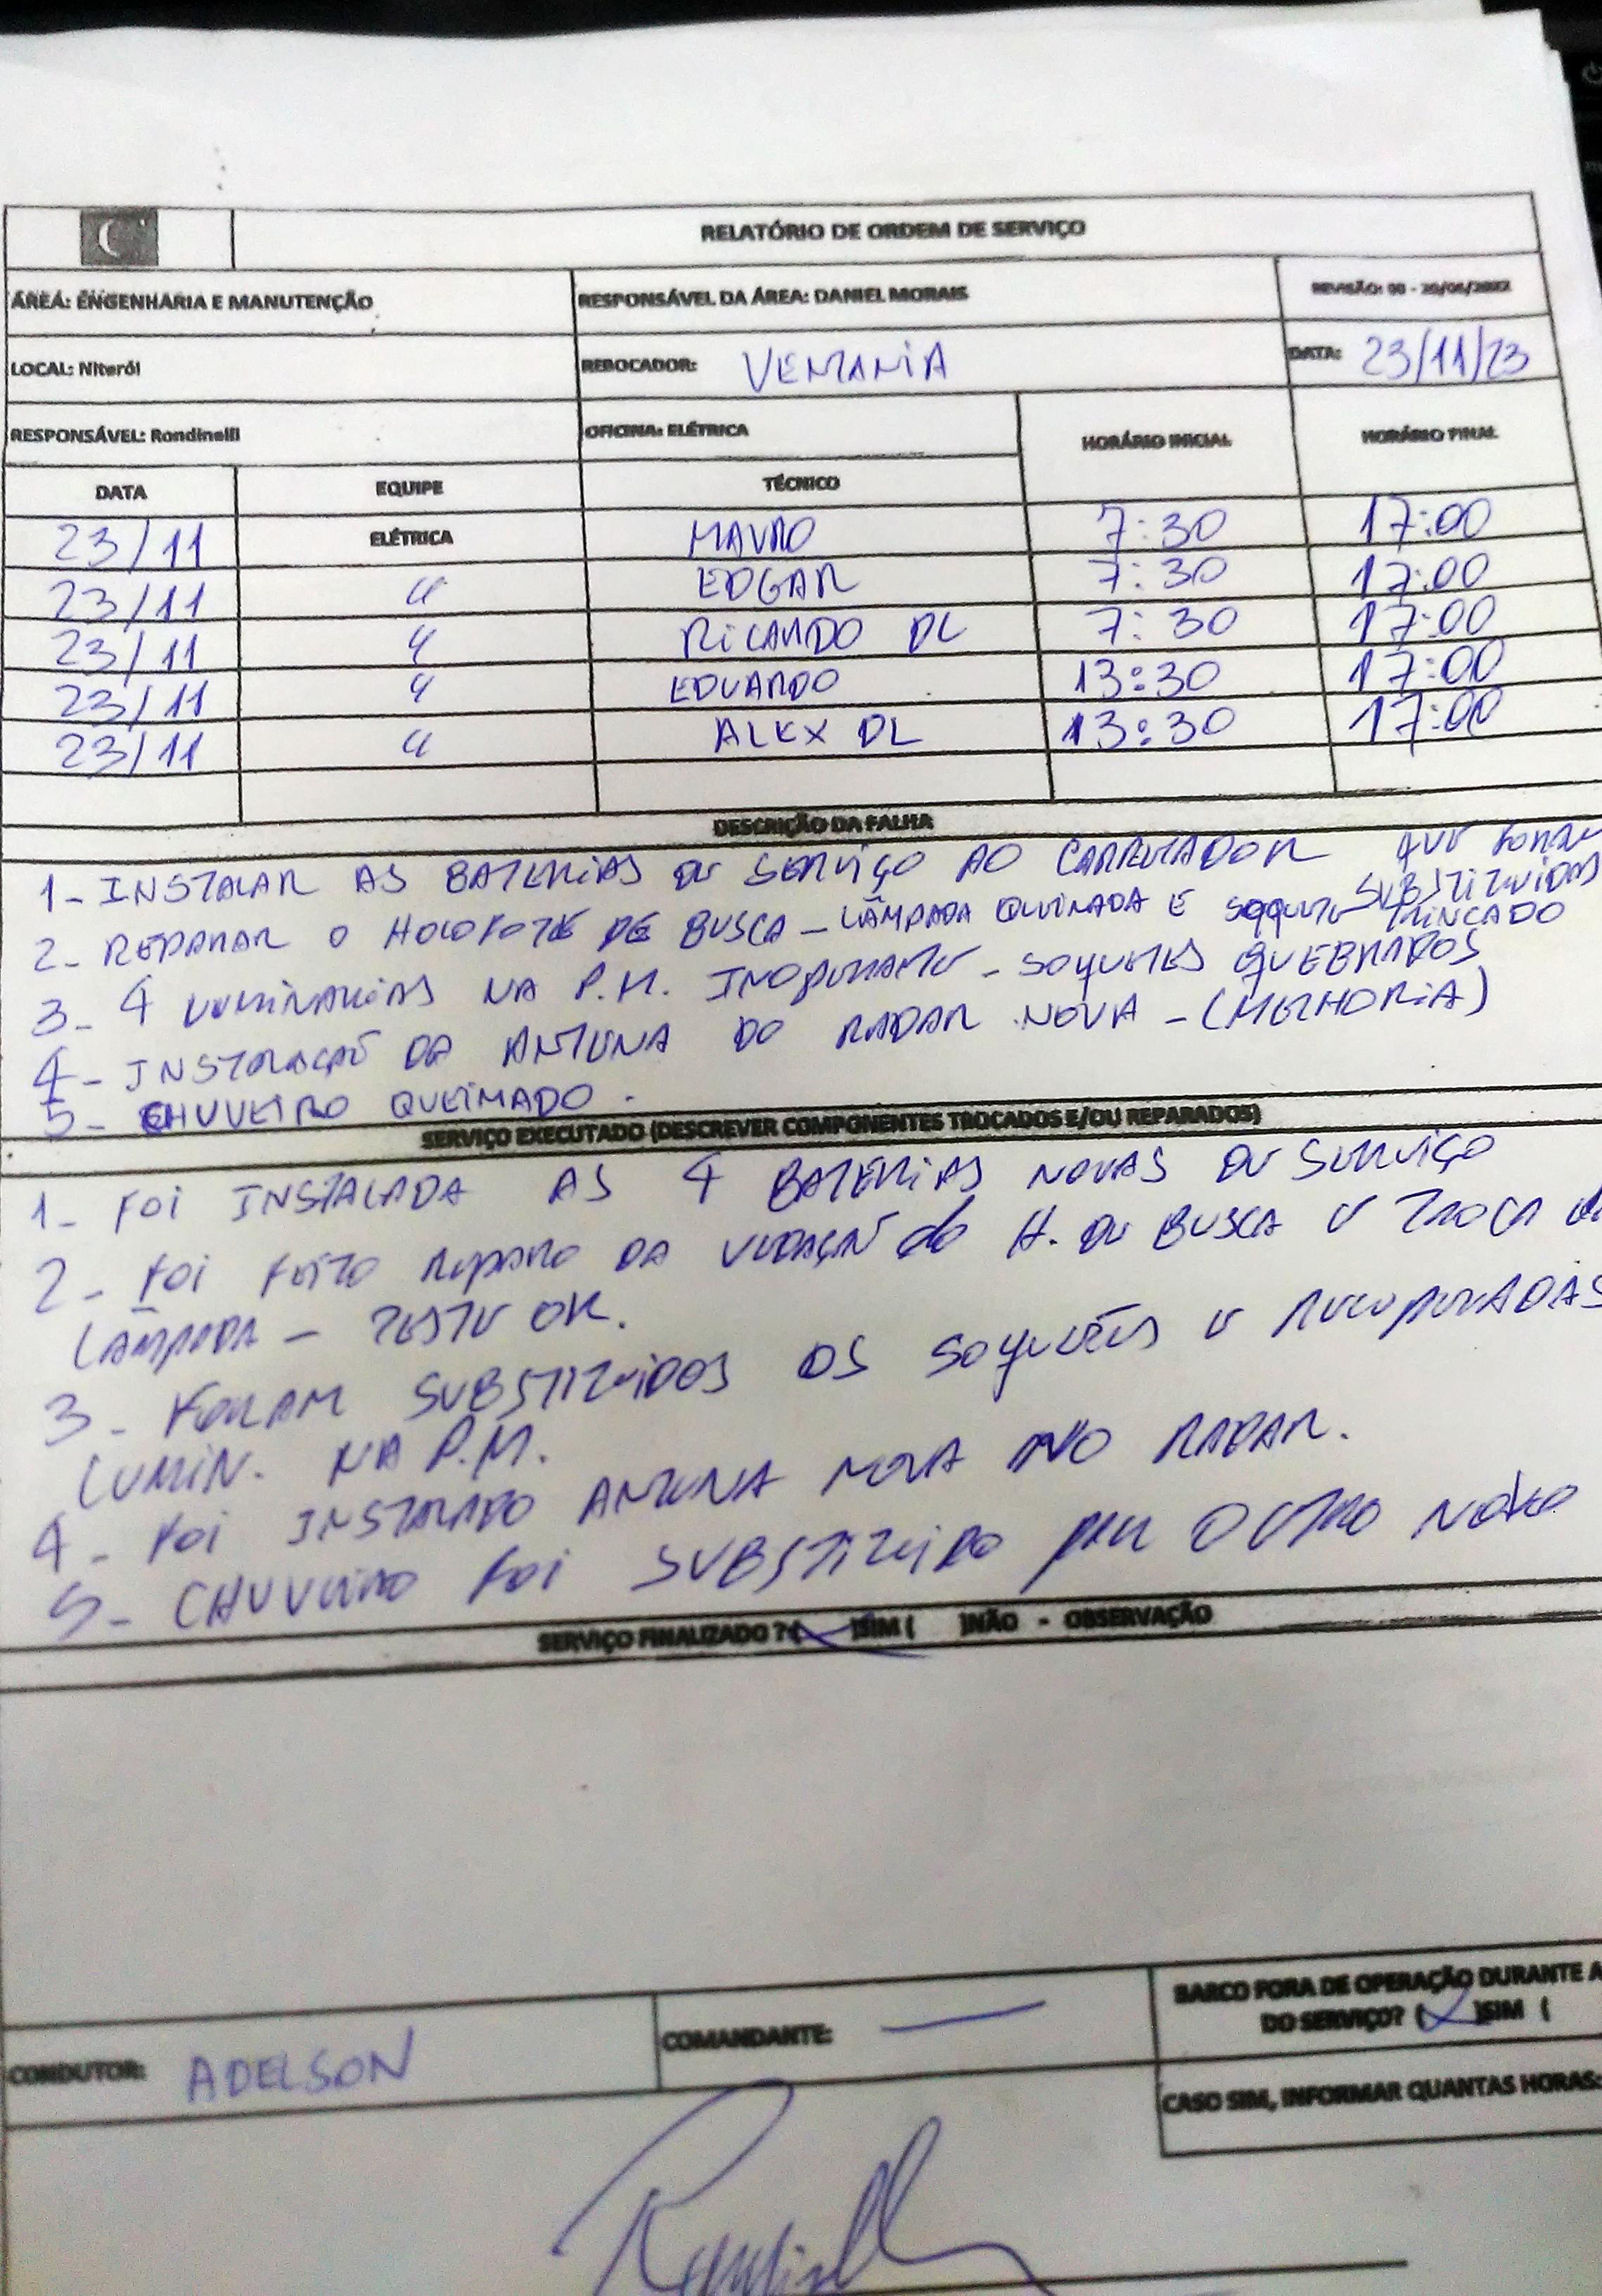 RELATÓRIO DE ORDEM DE SERVIÇO
ÁREA: ENGENHARIA E MANUTENÇÃO RESPONSÁVEL DA ÁREA: DANIEL MORAIS REVISÃO: 00 -
LOCAL: Niterói REBOCADOR: VENTANIA DATA: 23/11/23
RESPONSÁVEL: Rondinelli OFICINA: ELÉTRICA HORÁRIO INICIAL HORÁRIO FINAL
DATA EQUIPE TÉCNICO
23/11 ELÉTRICA MAURO 7:30 17:00
23/11 " EDGAR 7:30 17:00
23/11 " RICARDO DL 7:30 17:00
23/11 " EDUARDO 13:30 17:00
23/11 " ALEX DL 13:30 17:00
DESCRIÇÃO DA FALHA
1- INSTALAR AS BATERIAS DE SERVIÇO AO CARREGADOR QUE FORAM SUBSTITUIDAS
2- REPARAR O HOLOFOTE DE BUSCA - LÂMPADA QUEIMADA E SOQUETE TRINCADO
3- 4 LUMINARIAS NA P.M. INOPERANTE - SOQUETES QUEBRADOS
4- INSTALAÇÃO DA ANTENA DO RADAR NOVA - (MELHORIA)
5- CHUVEIRO QUEIMADO.
SERVIÇO EXECUTADO (DESCREVER COMPONENTES TROCADOS E/OU REPARADOS)
1- FOI INSTALADA AS 4 BATERIAS NOVAS DE SERVIÇO
2- FOI FEITO REPARO DA VEDAÇÃO do H. DE BUSCA E TROCA da
LÂMPADA - TESTE OK.
3- FORAM SUBSTITUIDOS OS SOQUETES E RECUPERADAS
LUMIN. NA P.M.
4- FOI INSTALADO ANTENA NOVA NO RADAR.
5- CHUVEIRO FOI SUBSTITUIDO POR OUTRO NOVO
SERVIÇO FINALIZADO ? (X)SIM ( )NÃO - OBSERVAÇÃO
BARCO FORA DE OPERAÇÃO DURANTE A
CONDUTOR: ADELSON COMANDANTE: — DO SERVIÇO? (X)SIM (
CASO SIM, INFORMAR QUANTAS HORAS: